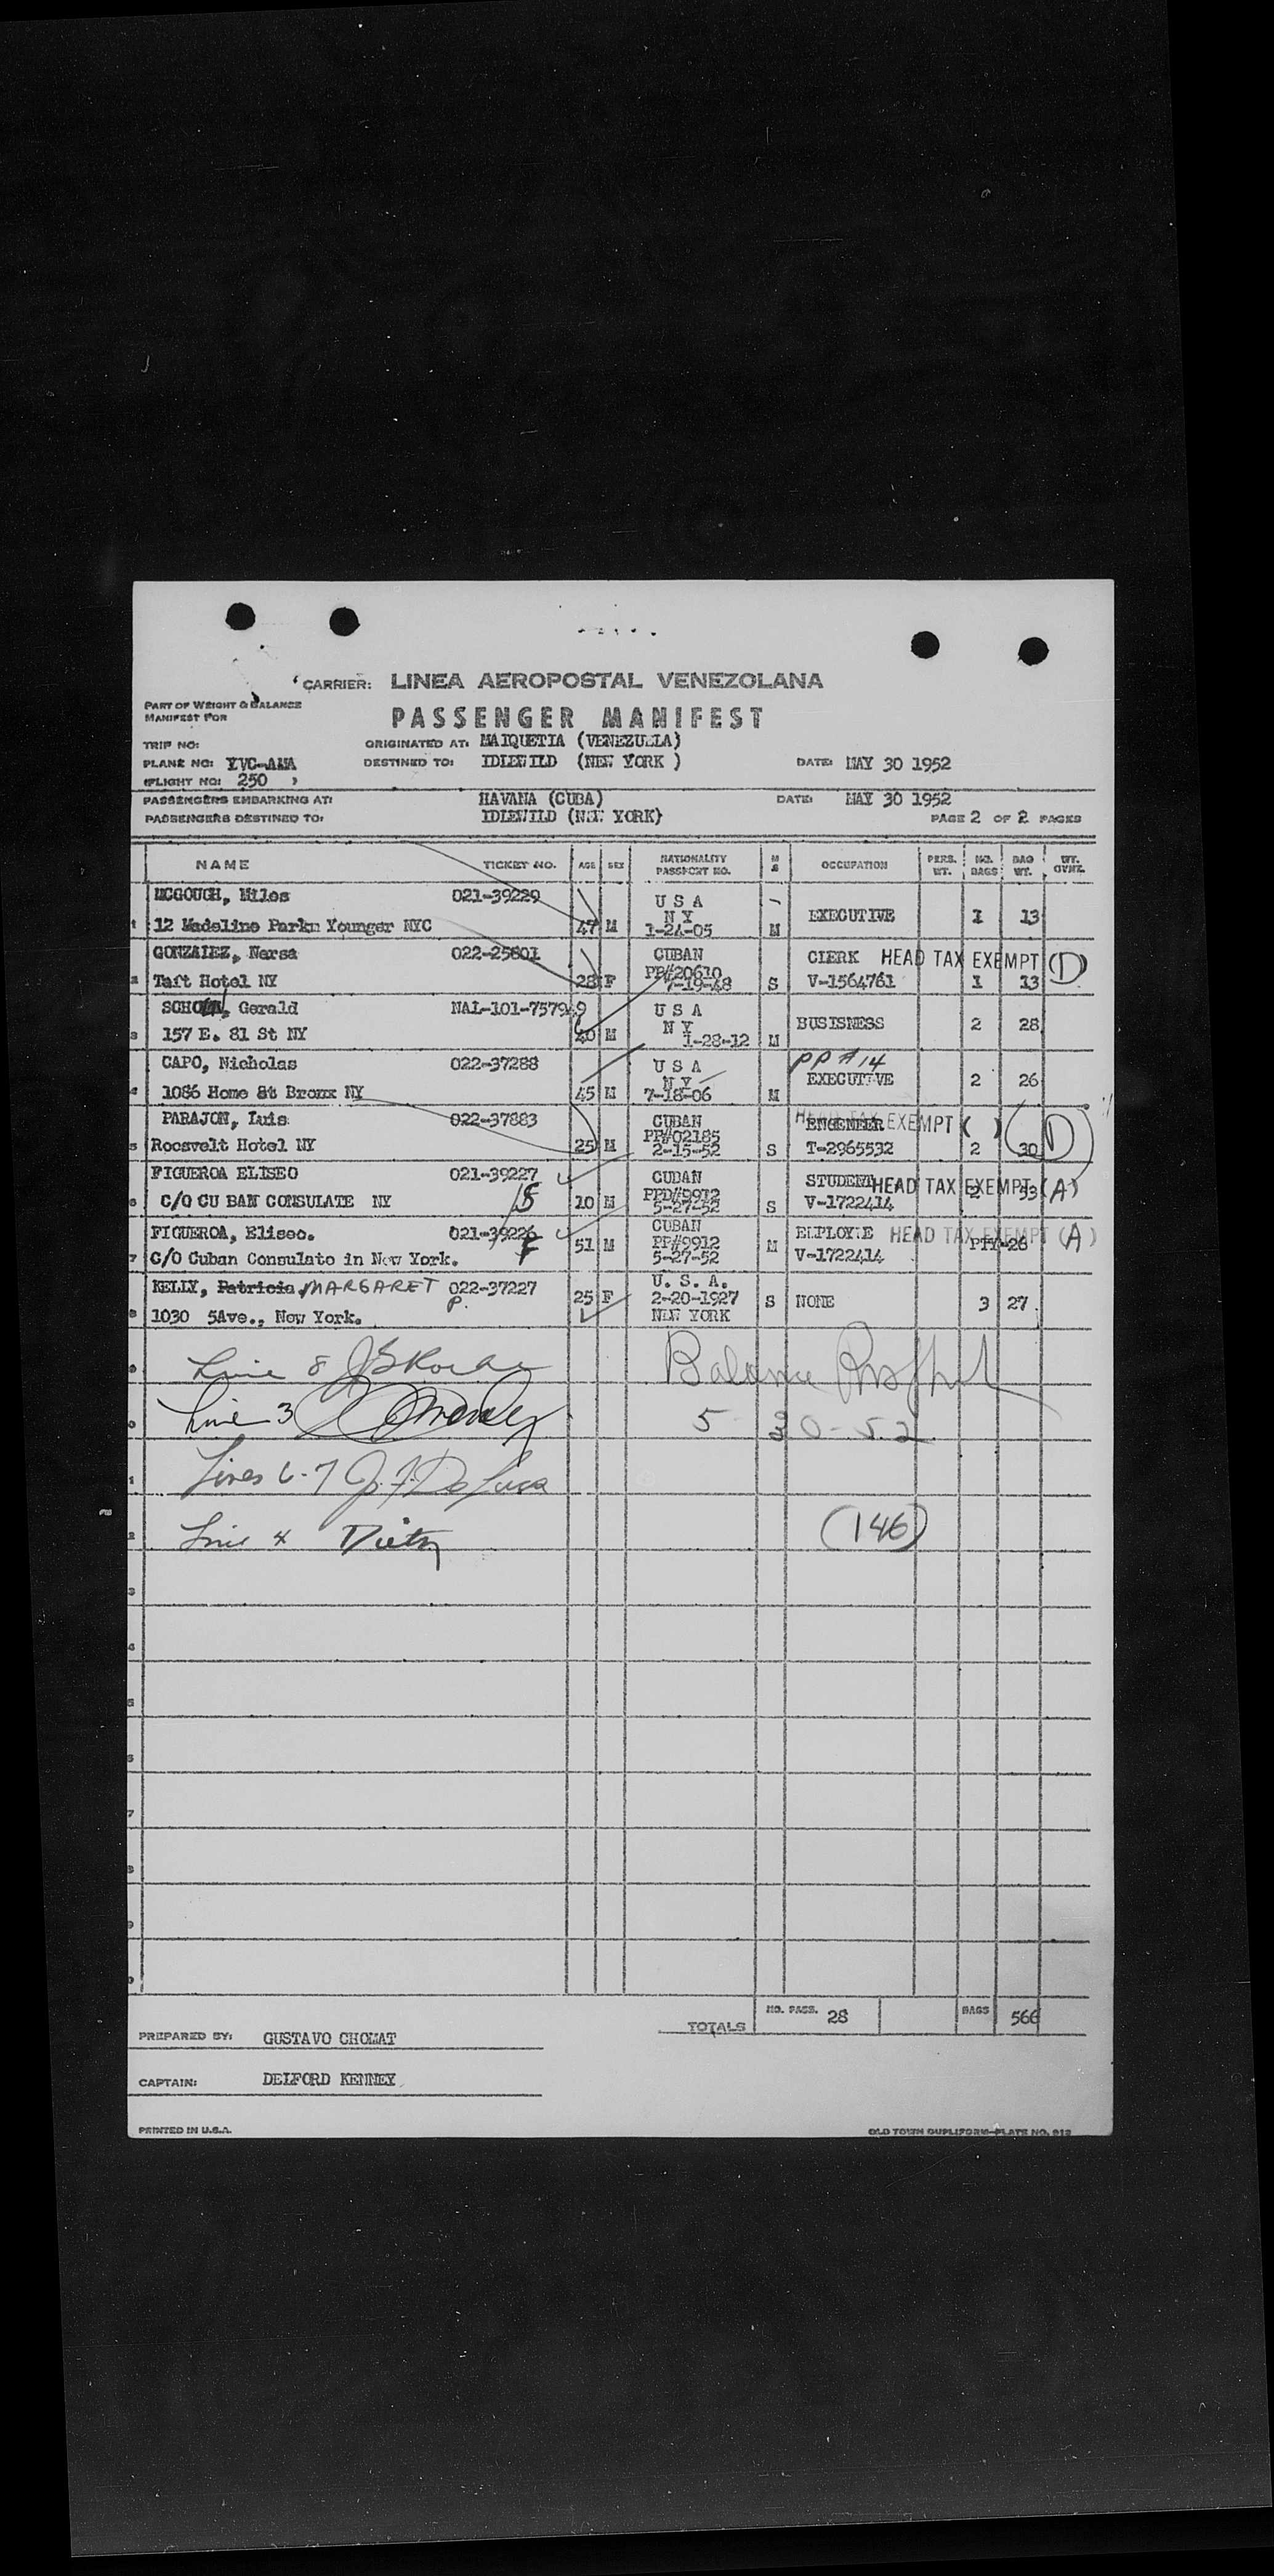 CARRIER: LINEA AEROPOSTAL VENEZOLANA
PART OF WEIGHT & BALANCE
MANIFEST FOR
PASSENGER MANIFEST
TRIP NO: ORIGINATED AT: MAIQUETIA (VENEZUELA)
PLANE NO: YVC-AMA DESTINED TO: IDLEWILD (NEW YORK ) DATE: MAY 30 1952
(FLIGHT NO: 250 )
PASSENGERS EMBARKING AT: HAVANA (CUBA) DATE: MAY 30 1952
PASSENGERS DESTINED TO: IDLEWILD (NEW YORK) PAGE 2 OF 2 PAGES
NAME TICKET NO. AGE SEX NATIONALITY PASSPORT NO. M S OCCUPATION PERS. WT. NO. BAGS BAG WT. WT. OVHE.
MCGOUGH, Miles 021-39229 U S A
N Y
1 12 Madeline Parkn Younger NYC 47 M 1-24-05 M EXECUTIVE 1 13
GONZALEZ, Nersa 022-25801 CUBAN CLERK HEAD TAX EXEMPT (D)
PP#20610
2 Taft Hotel NY 28 F 7-19-48 S V-1564761 1 13
Gerald NAL-101-757949 U S A
N Y BUSISNESS 2 28
3 157 E. 81 St NY 40 M 1-28-12 M
CAPO, Nicholas 022-37288 U S A PP#14
N Y EXECUTIVE 2 26
4 1086 Home St Bronx NY 45 M 7-18-06 M
PARAJON, Luis 022-37883 CUBAN ENGENEER HEAD TAX EXEMPT ( ) (D)
PP#02185
5 Roosvelt Hotel NY 25 M 2-15-52 S T-2965532 2 30
FIGUEROA ELISEO 021-39227 CUBAN STUDENT HEAD TAX EXEMPT (A)
PPD#9912 2 33
6 C/O CU BAN CONSULATE NY S 10 M 5-27-52 S V-1722414
FIGUEROA, Eliseo. 021-39226 CUBAN EMPLOYEE HEAD TAX EXEMPT (A)
F 51 M PP#9912 M PTY-28
7 C/O Cuban Consulate in New York. 5-27-52 V-1722414
KELLY, Patricia MARGARET P. 022-37227 U. S. A.
25 F 2-20-1927 S NONE 3 27
8 1030 5Ave., New York. NEW YORK
Line 8
Line 3
5 30-52
Lines 6-7 J. F. DeLuca
Line 4 Dietz
(146)
TOTALS NO. PASS. 28 BAGS 566
PREPARED BY: GUSTAVO CHOMAT
CAPTAIN: DELFORD KENNEY
PRINTED IN U.S.A. OLD TOWN DUPLIFORM-PLATE NO. 912